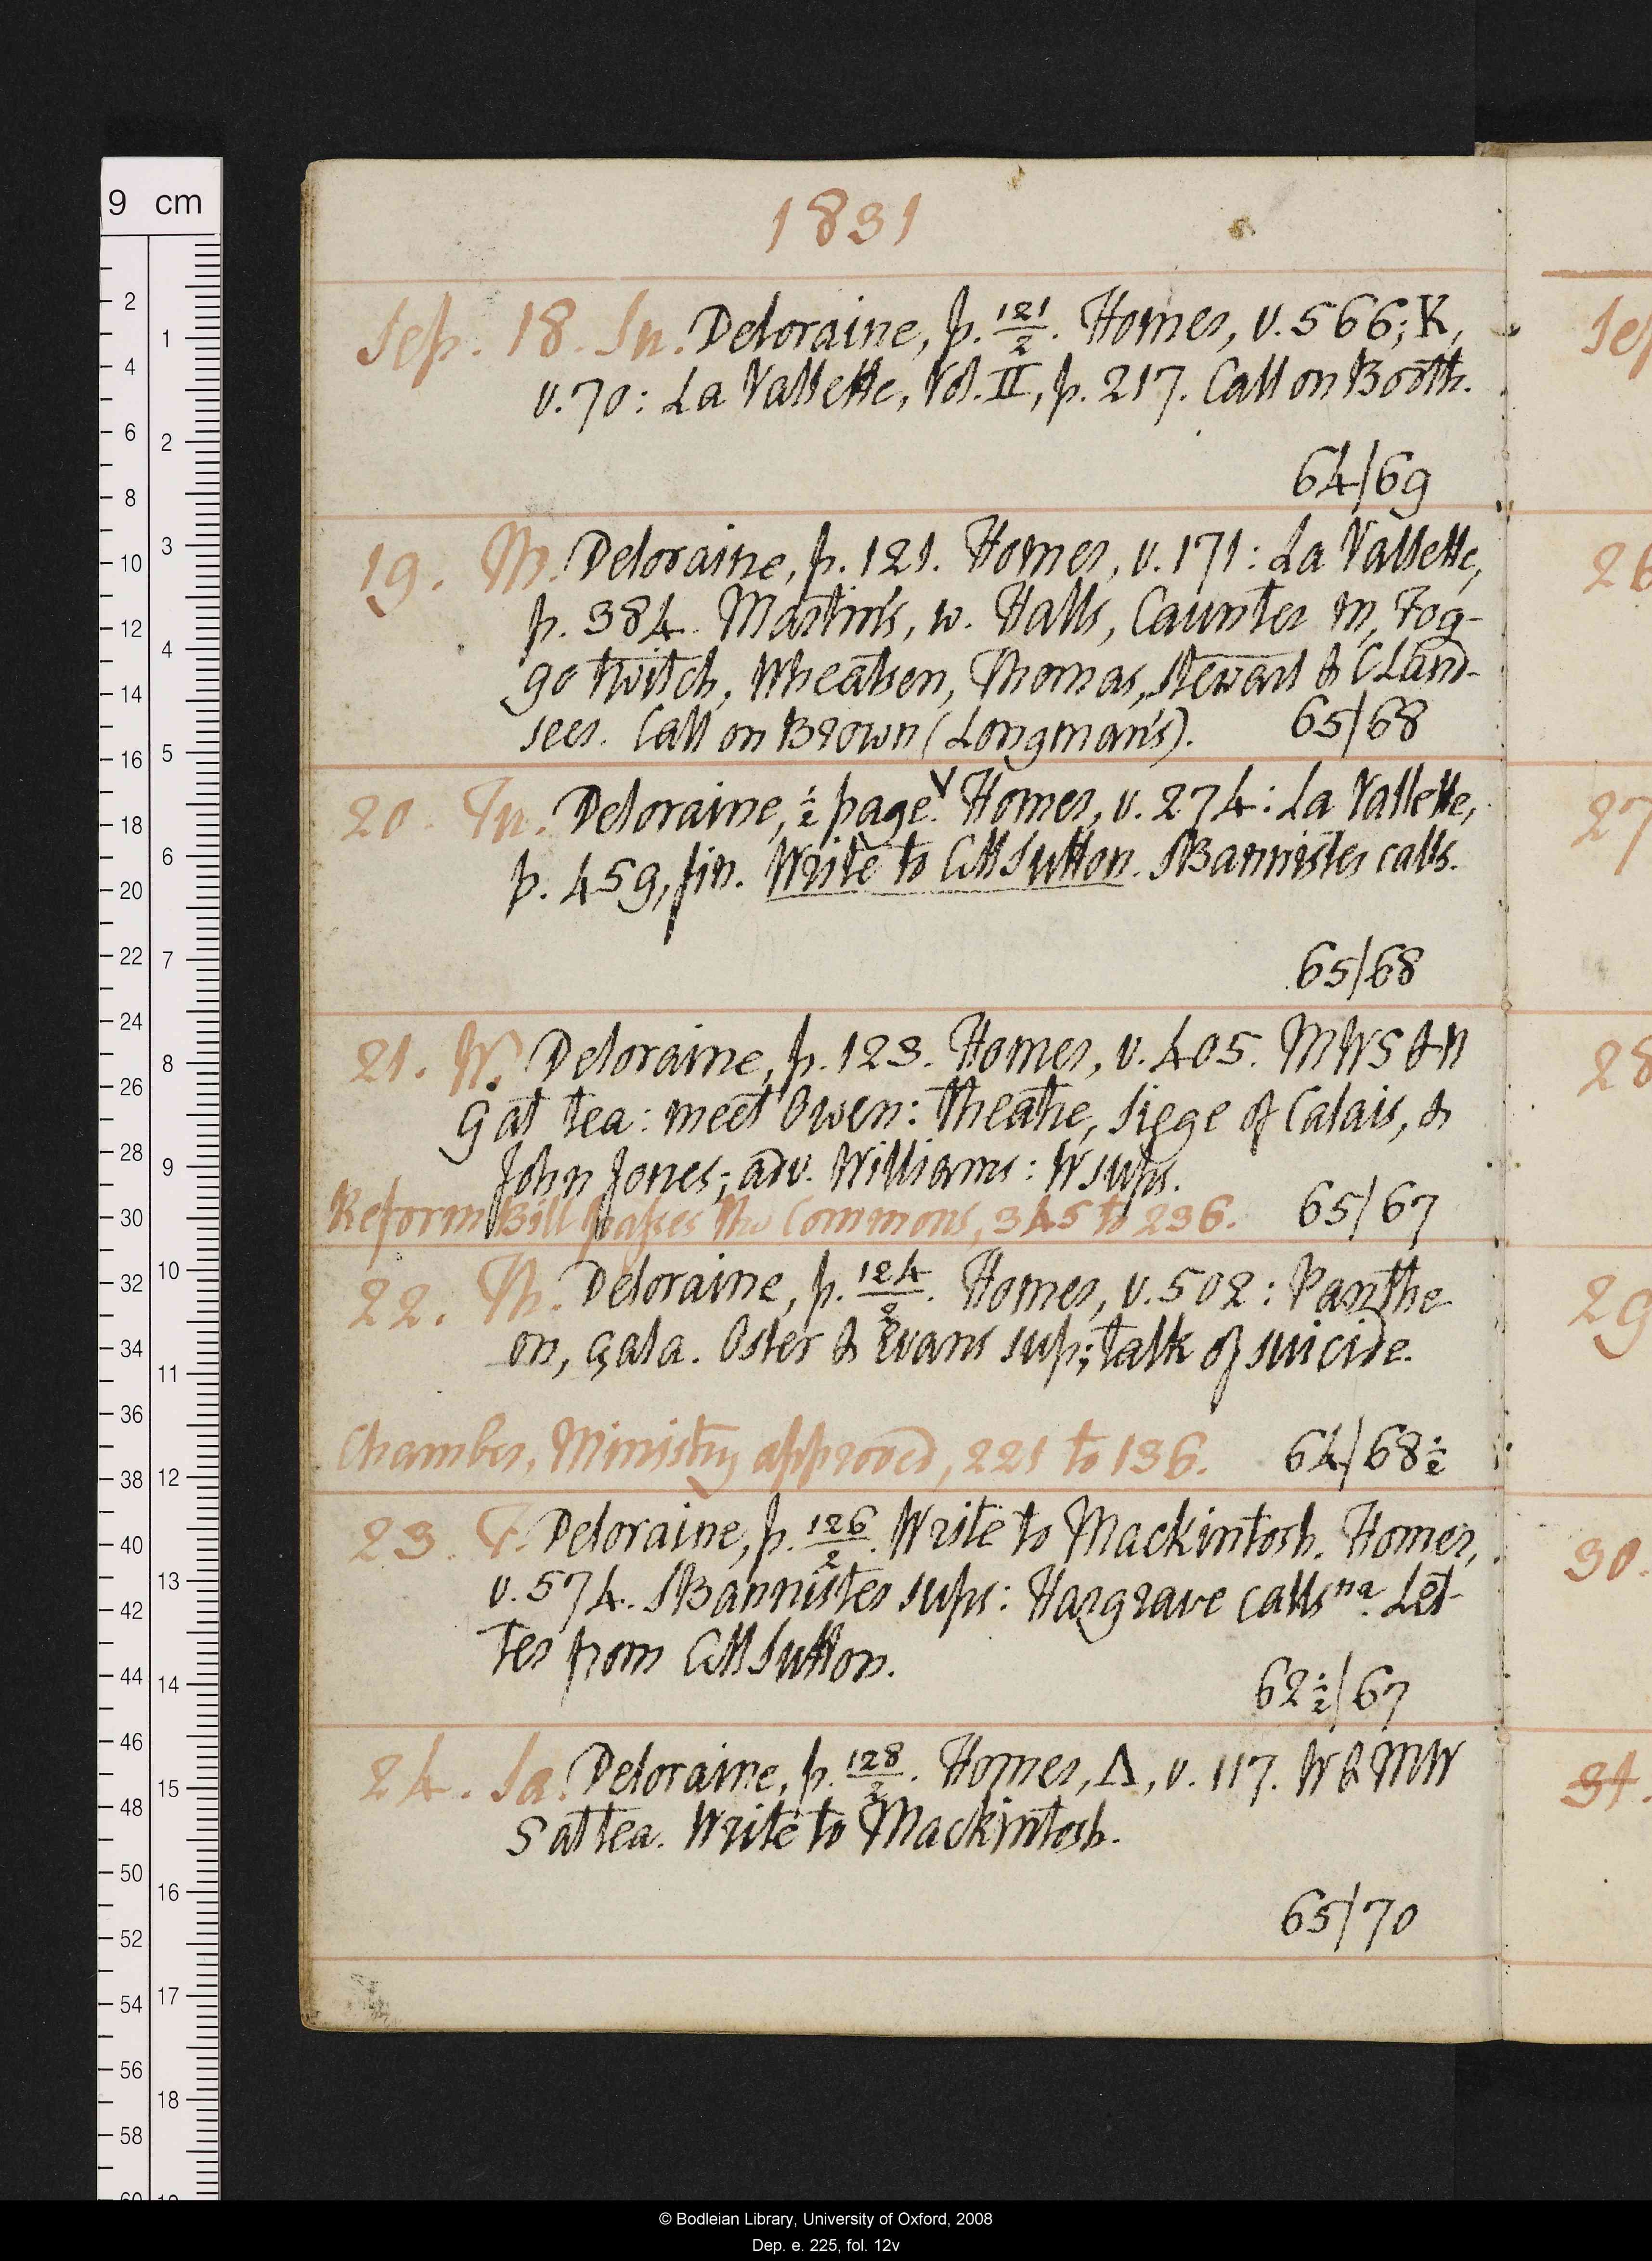 1831
Sep. 18. Su. Deloraine, p. 121/2. Homer, v. 566; K,
v. 70: La Vallette, Vol. II, p. 217. Call on Booth.
64/69
19. M. Deloraine, p. 121. Homer, v. 171: La Vallette,
p. 384. Martin's, w. Halls, Caunter m, Fog-
go twitch, Wheatsen, Thomas, Stewart & C Land-
seer. Call on Brown (Longman's). 65/68
20. Tu. Deloraine, ½ page. Homer, v. 274: La Vallette,
p. 459, fin. Write to CM Sutton. S Bannister calls.
65/68
21. W. Deloraine, p. 123. Homer, v. 405. MWS & n
G at tea: meet Owen: theatre, Siege of Calais, &
John Jones; adv. Williams: W sups.
Reform Bill passes the Commons, 345 to 236. 65/67
22. Th. Deloraine, p. 124/2. Homer, v. 502: Panthe
on, gala. Oster & Evans sup; talk of suicide.
Chamber, Ministry approved, 221 to 136. 64/68½
23. F. Deloraine, p. 126/2. Write to Mackintosh. Homer,
v. 574. S Bannister sups: Hargrave calls na. Let-
ter from CM Sutton.
62½/67
24. Sa. Deloraine, p. 128/2. Homer, Λ, v. 117. W & MW
S at tea. Write to Mackintosh.
65/70
Sep
26
27
28
29
30.
31.
9 cm
2
4
6
8
10
12
14
16
18
20
22
24
26
28
30
32
34
36
38
40
42
44
46
48
50
52
54
56
58
60
1
2
3
4
5
6
7
8
9
10
11
12
13
14
15
16
17
18
© Bodleian Library, University of Oxford, 2008
Dep. e. 225, fol. 12v